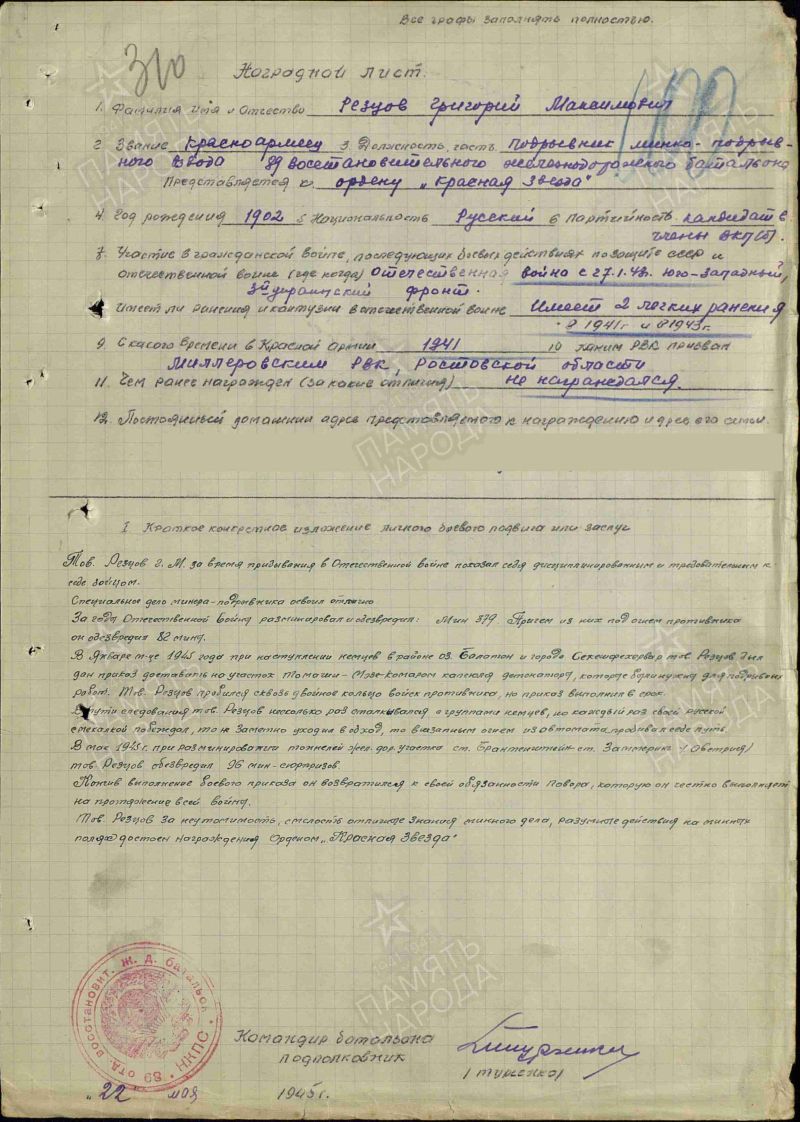 Все графы заполнять полностью.
310
Наградной лист.
1. Фамилия имя и отчество Резцов Григорий Максимович
2. Звание красноармеец 3. Должность, часть подрывник минно-подрыв-
ного взвода 89 восстановительного железнодорожного батальона
Представляется к ордену „Красная Звезда"
4. Год рождения 1902 5 Национальность Русский 6 Партийность кандидат в
члены ВКП(б).
7. Участие в гражданской войне, последующих боевых действиях по защите СССР и
отечественной войне (где когда) Отечественная война с 27.1.43г. Юго-Западный,
3й украинский фронт.
Имеет ли ранения и контузии в отечественной войне Имеет 2 легких ранения
в 1941г и в 1943г.
9. С какого времени в Красной армии 1941 10 каким РВК призван
Миллеровским РВК, Ростовской области
11. Чем ранее награжден (за какие отличия) не награждался.
12. Постоянный домашний адрес представляемого к награждению и адрес его семьи.
I Краткое конкретное изложение личного боевого подвига или заслуг
Тов. Резцов Г. М. за время прибывания в Отечественной войне показал себя дисциплинированным и требовательным к
себе бойцом.
Специальное дело минера-подрывника освоил отлично
За годы Отечественной войны разминировал и обезвредил: мин 379. Причем из них под огнем противника
он обезвредил 82 мины.
В Январе м-це 1945 года при наступлении немцев в районе оз. Балатон и города Секешфехервар тов. Резцов был
дан приказ доставить на участок Томаши - Мезе-Комалом капсюля детонатора, которые были нужны для подрывных
работ. Тов. Резцов пробился сквозь двойное кольцо войск противника, но приказ выполнил в срок.
В пути следования тов. Резцов несколько раз сталкивался с группами немцев, но каждый раз своей русской
смекалкой побеждал, то не заметно уходил в обход, то внезапным огнем из автомата пробивал себе путь.
В мае 1945г. при разминировании тоннелей жел. дор. участка ст. Брантенштейн - ст. Заттеринг (Австрия)
тов. Резцов обезвредил 96 мин-сюрпризов.
Кончив выполнение боевого приказа он возвратился к своей обязанности повара, которую он честно выполняет
на протяжение всей войны.
Тов. Резцов за неутомимость, смелость отличные знания минного дела, разумные действия на минных
полях достоен награждения Орденом „Красная Звезда"
89 отд. восстановит. ж. д. батальон • НКПС •
Командир батальона
подполковник
/Тищенко/
„22" мая 1945г.
ПАМЯТЬ
НАРОДА